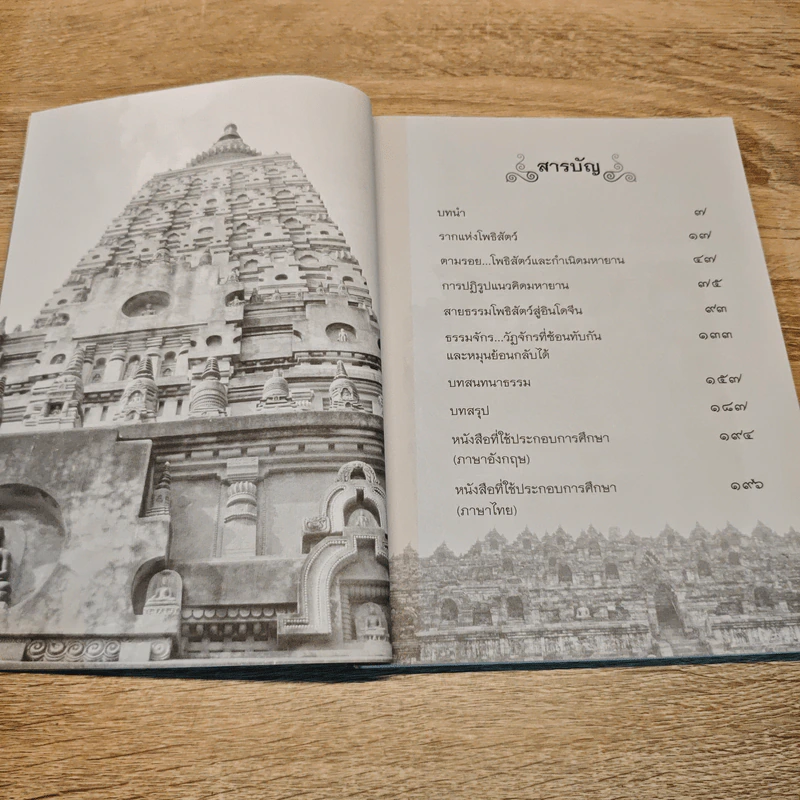 สารบัญ
บทนำ ๗
รากแห่งโพธิสัตว์ ๑๗
ตามรอย...โพธิสัตว์และกำเนิดมหายาน ๔๗
การปฏิรูปแนวคิดมหายาน ๗๕
สายธรรมโพธิสัตว์สู่อินโดจีน ๙๓
ธรรมจักร...วัฏจักรที่ซ้อนทับกัน ๑๓๓
และหมุนย้อนกลับได้
บทสนทนาธรรม ๑๕๗
บทสรุป ๑๘๗
หนังสือที่ใช้ประกอบการศึกษา ๑๙๔
(ภาษาอังกฤษ)
หนังสือที่ใช้ประกอบการศึกษา ๑๙๖
(ภาษาไทย)